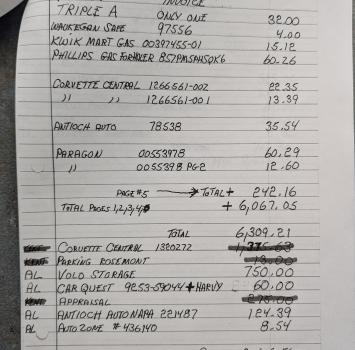 INVOICE
TRIPLE A ONLY ONE 32.00
WAUKEGAN SAFE 97556 4.00
KWIK MART GAS 00397455-01 15.12
PHILLIPS GAS FORHAULER 857PMSPHSQK6 60.26
CORVETTE CENTRAL 1266561-002 22.35
" " 1266561-001 13.39
ANTIOCH AUTO 78538 35.54
PARAGON 00553978 60.29
" 0055398 PG-2 12.60
PAGE #5 → TOTAL + 242.16
TOTAL PAGES 1,2,3,4 + 6,067.05
TOTAL 6,309.21
CORVETTE CENTRAL 1320272
PARKING ROSEMONT 13.00
AL VOLO STORAGE 750.00
AL CAR QUEST 9253-59044 + HARDY 60.00
APPRAISAL 275.00
AL ANTIOCH AUTO NAPA 221487 124.39
AL AUTO ZONE #436140 8.54